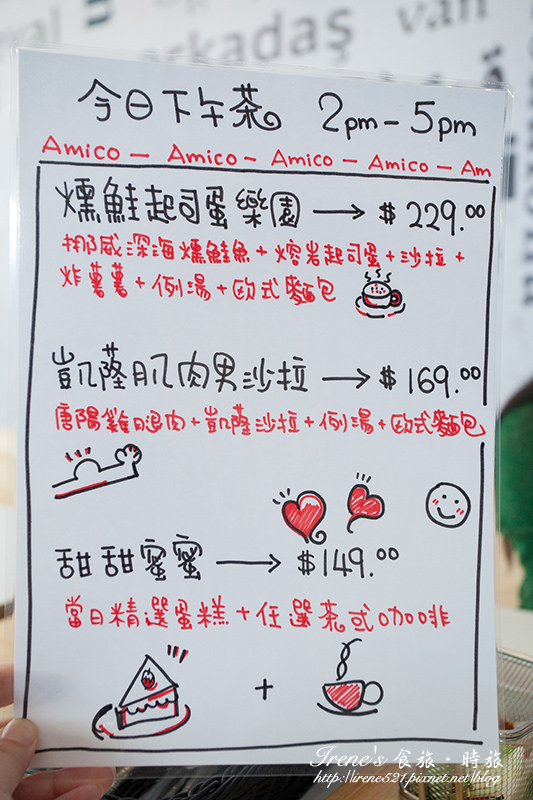 arkadaş
van
今日下午茶 2pm-5pm
Amico - Amico - Amico - Amico - Am
燻鮭起司蛋樂園 → $229.00
挪威深海燻鮭魚+熔岩起司蛋+沙拉+
炸薯薯+例湯+歐式麵包
凱薩肌肉男沙拉 → $169.00
唐陽雞腿肉+凱薩沙拉+例湯+歐式麵包
甜甜蜜蜜 → $149.00
當日精選蛋糕+任選茶或咖啡
+
Irene's 食旅.時旅
http://irene521.pixnet.net/blog